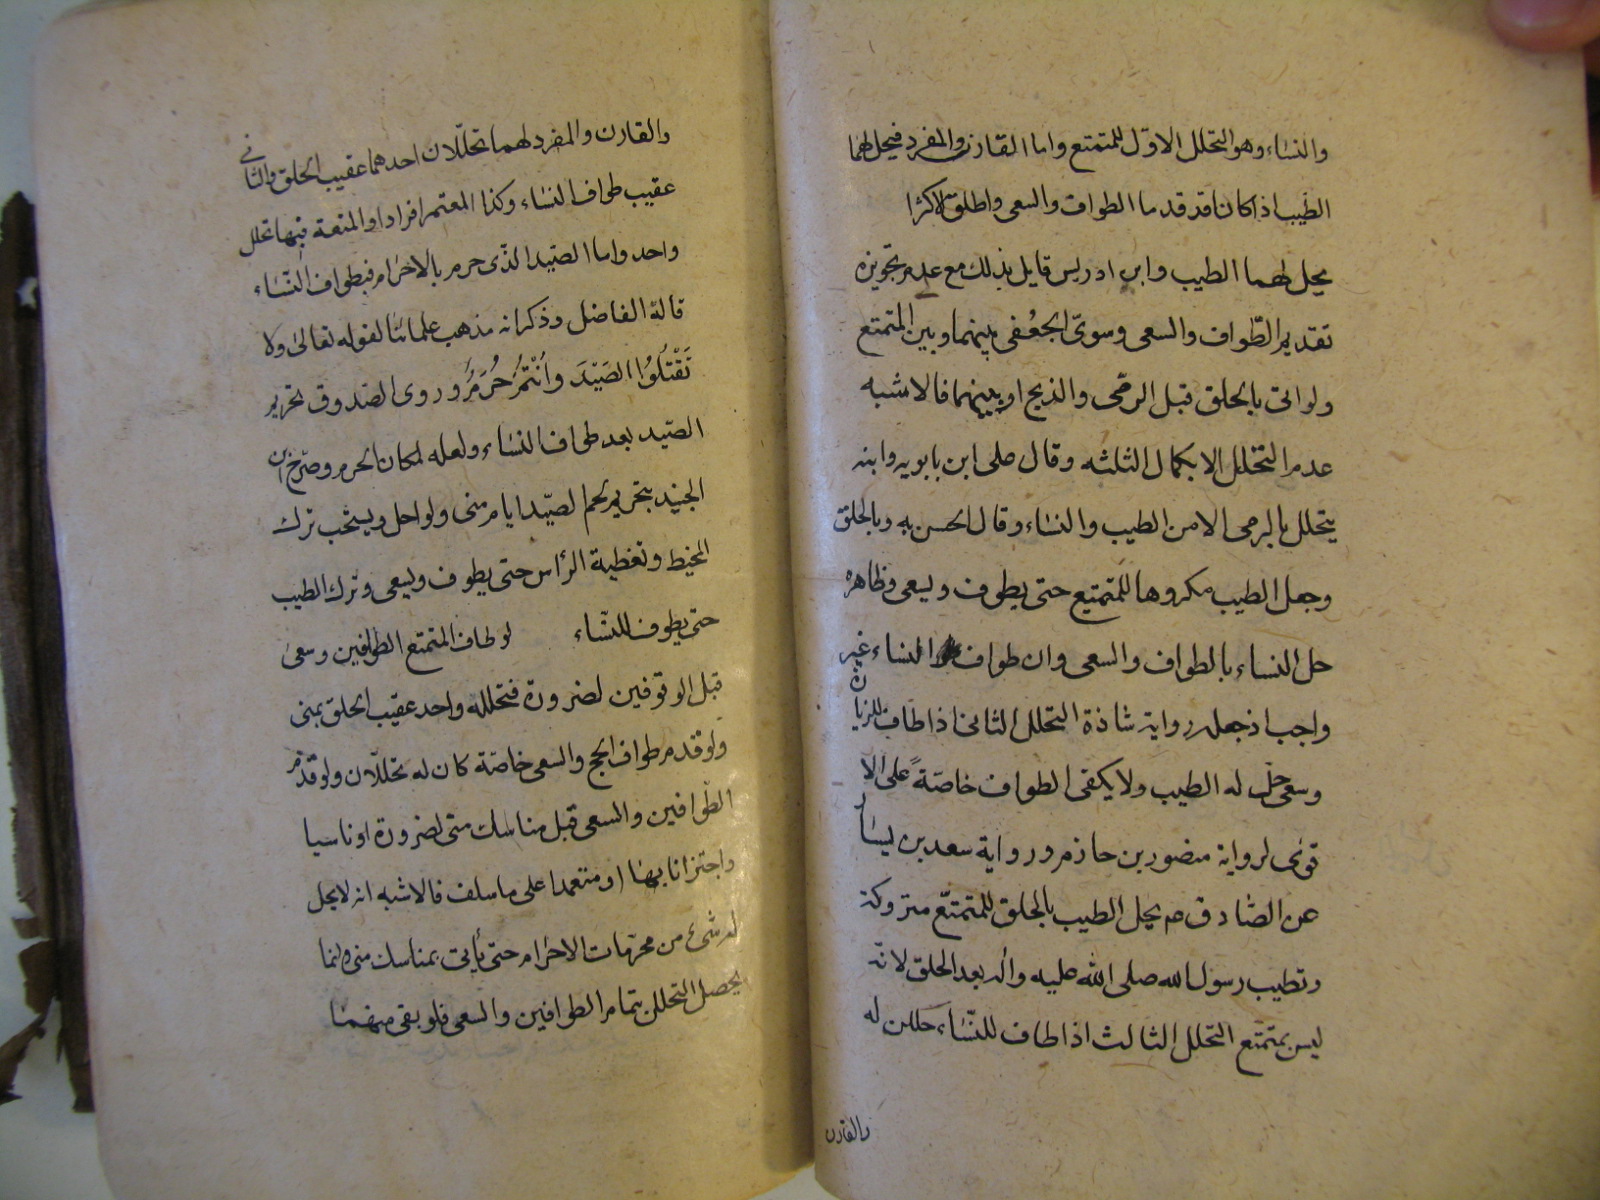 والنساء وهو التحلل الاول للمتمتع واما القارن والمفرد فيحل لهما
الطيب اذا كانا قد قدما الطواف والسعى واطلق الاكثر انه
يحل لهما الطيب وابن ادريس قايل بذلك مع عدم تجويزه
تقديم الطواف والسعى وسوى الجعفى بينهما وبين المتمتع
ولو اتى بالحلق قبل الرمى والذبح او بينهما فالاشبه
عدم التحلل الا بكمال الثلثه وقال على ابن بابويه وابنه
يتحلل بالرمى الا من الطيب والنساء وقال الحسن به وبالحلق
وجعل الطيب مكروها للمتمتع حتى يطوف ويسعى وظاهره
حل النساء بالطواف والسعى وان طواف النساء غير
واجب اذ جعله رواية شاذة التحلل الثانى اذا طاف للزيارة
وسعى حل له الطيب ولا يكفى الطواف خاصة على الا
قوى لرواية منصور بن حازم ورواية سعد بن يسار
عن الصادق م يحل الطيب بالحلق للمتمتع متروكة
وتطيب رسول الله صلى الله عليه واله بعد الحلق لانه
ليس بمتمتع التحلل الثالث اذا طاف للنساء حللن له
والقارن
والقارن والمفرد لهما تحللان احدهما عقيب الحلق والثانى
عقيب طواف النساء وكذا المعتمر افرادا والمتعة فيها تحلل
واحد واما الصيد الذى حرم بالاحرام فبطواف النساء
قاله الفاضل وذكر انه مذهب علمائنا لقوله تعالى ولا
تَقْتُلُوا الصَيْدَ وأنْتُمْ حُرُمٌ وروى الصدوق تحريم
الصيد بعد طواف النساء ولعله لمكان الحرم وصرح ابن
الجنيد بتحريم لحم الصيد ايام منى ولو احل ويستحب ترك
المخيط وتغطية الرأس حتى يطوف ويسعى وترك الطيب
حتى يطوف للنساء لو طاف المتمتع الطوافين وسعى
قبل الوقوفين لضرورة فتحلله واحد عقيب الحلق بمنى
ولو قدم طواف الحج والسعى خاصة كان له تحللان ولو قدم
الطوافين والسعى قبل مناسك منى لضرورة او ناسيا
واجتزانا بها او متعمدا على ما سلف فالاشبه انه لا يحل
له شىء من محرمات الاحرام حتى يأتى بمناسك منى وانما
يحصل التحلل بتمام الطوافين والسعى فلو بقى منهما